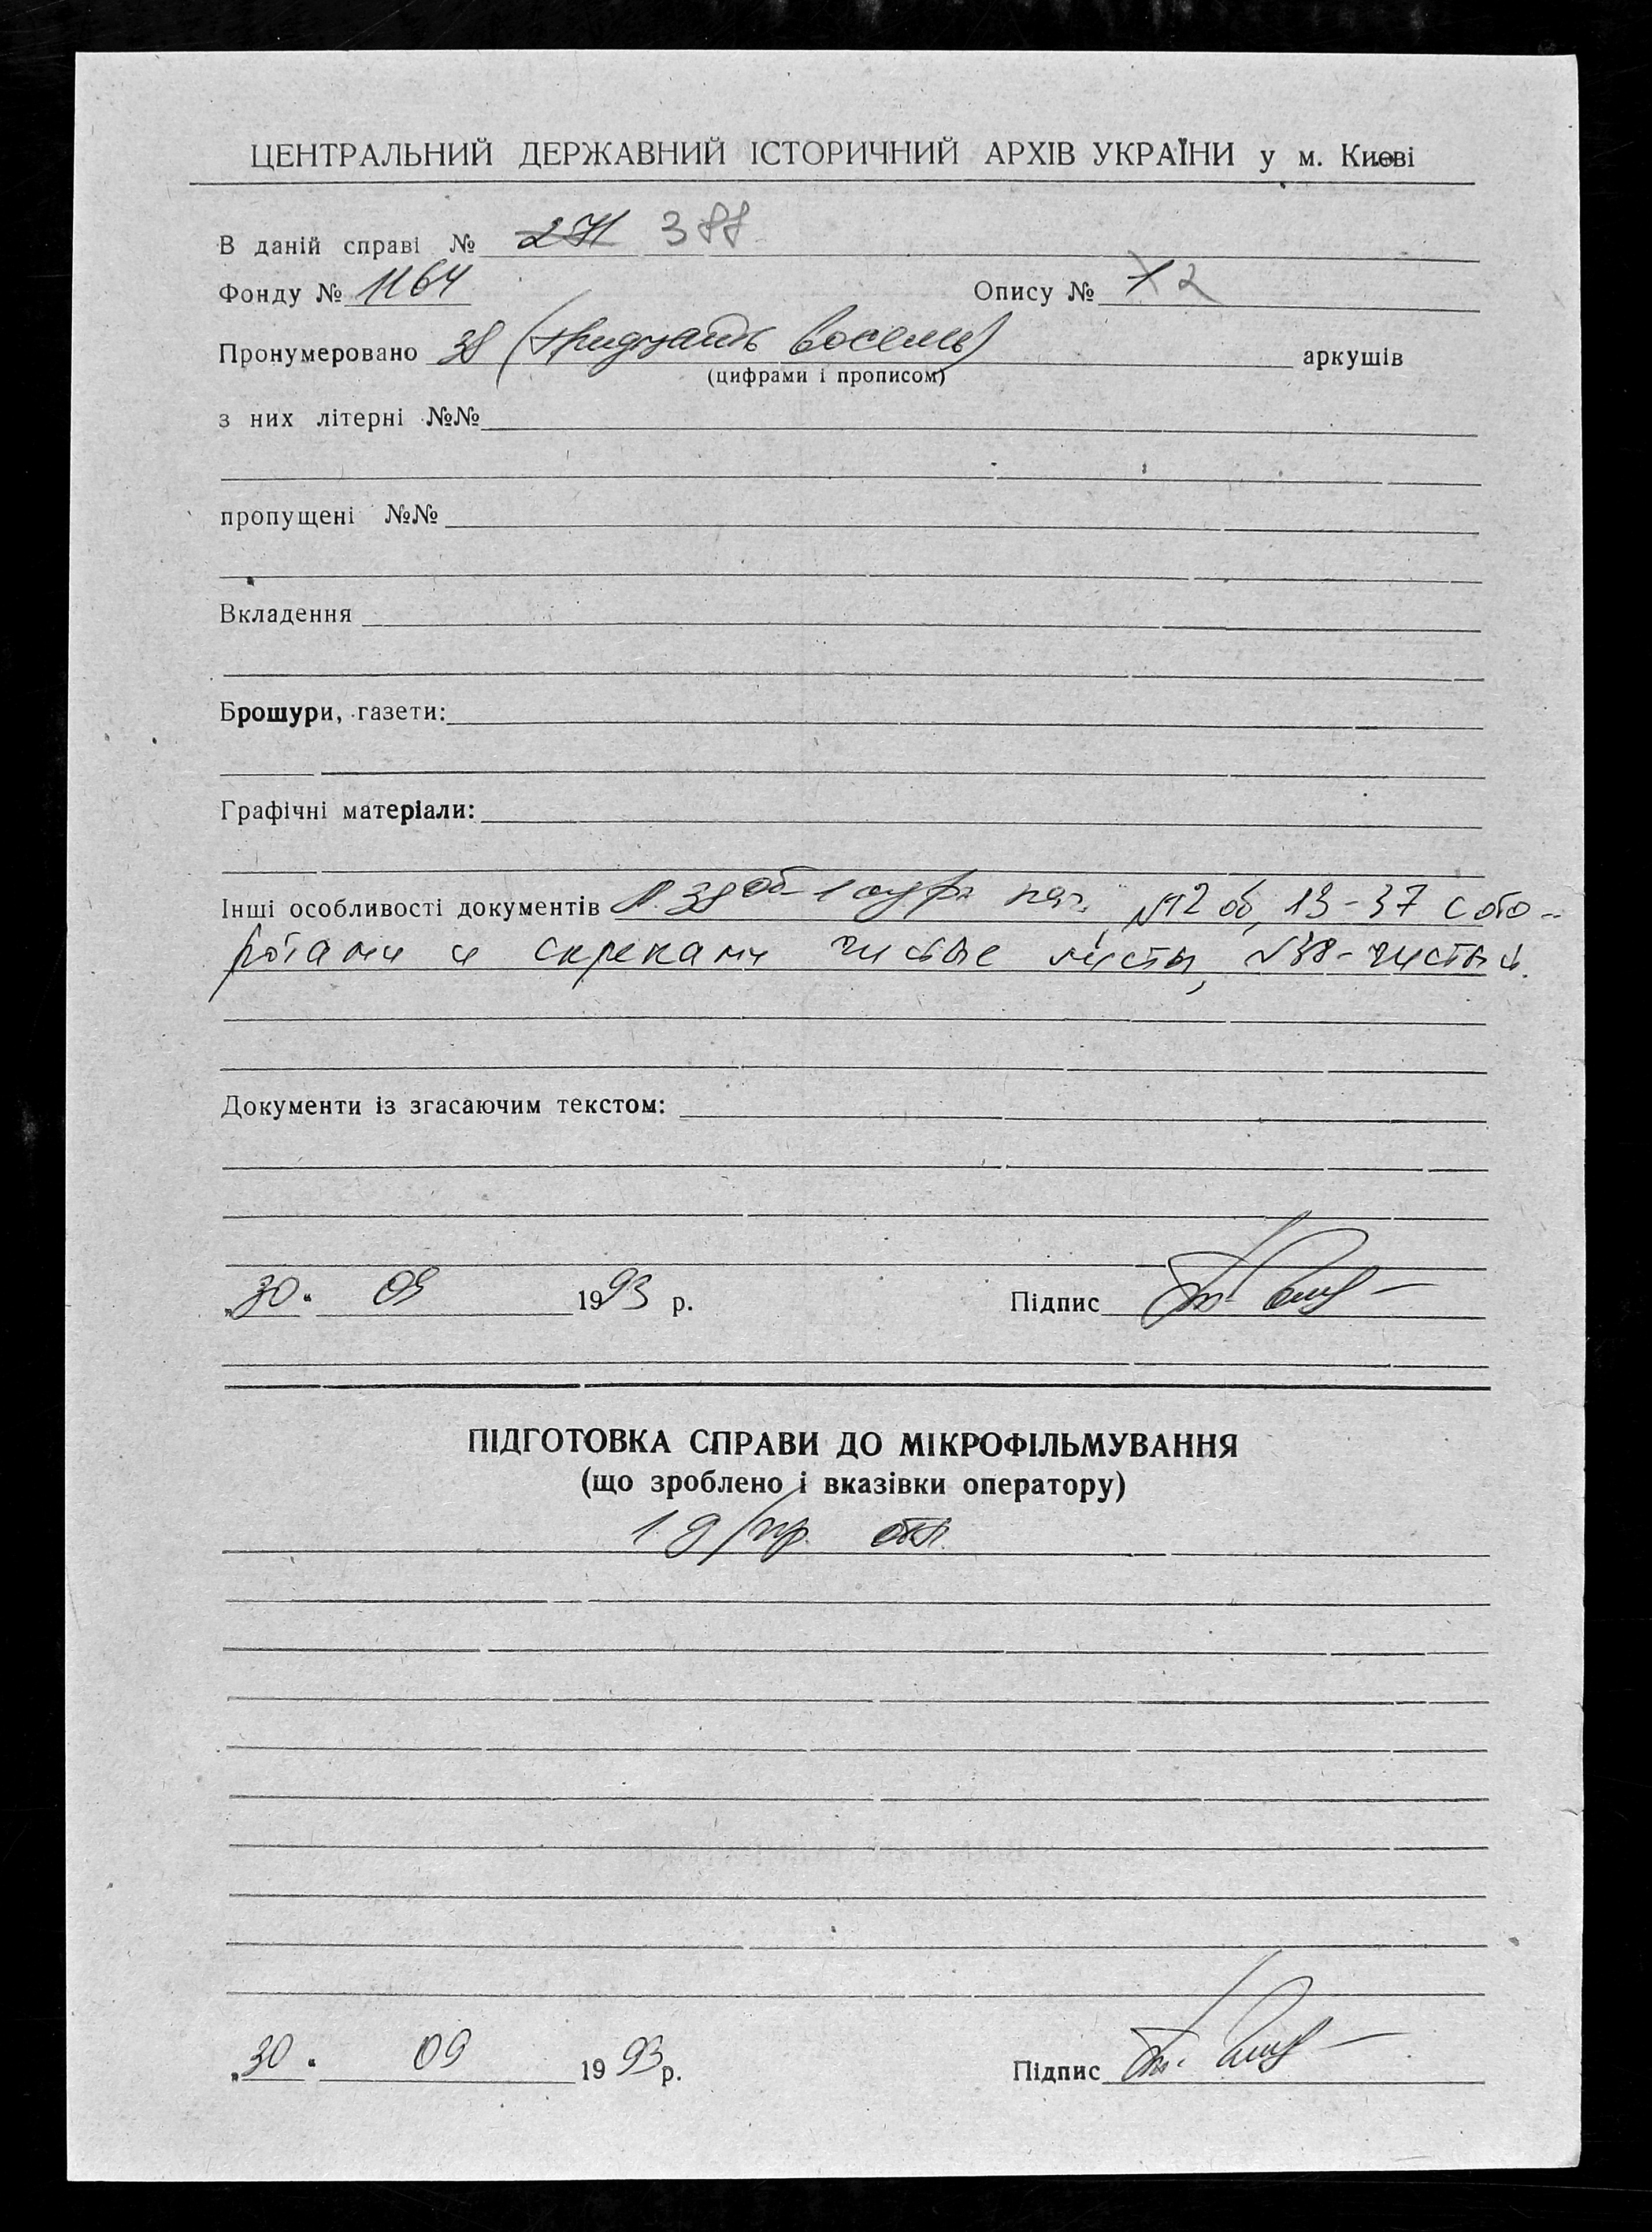 ЦЕНТРАЛЬНИЙ ДЕРЖАВНИЙ ІСТОРИЧНИЙ АРХІВ УКРАЇНИ у м. Києві
В даній справі № 271 388
Фонду № 1164 Опису № 1 2
Пронумеровано 38 (тридцать восемь) аркушів
(цифрами і прописом)
з них літерні №№
пропущені №№
Вкладення
Брошури, газети:
Графічні матеріали:
Інші особливості документів л. 38 об - 1 печ, 12 об, 13-37 с обо-
ротами и скрепами чистые листы, 38 - чистый.
Документи із згасаючим текстом:
„30“ 09 1993 р. Підпис
ПІДГОТОВКА СПРАВИ ДО МІКРОФІЛЬМУВАННЯ
(що зроблено і вказівки оператору)
1
„30“ 09 1993 р. Підпис